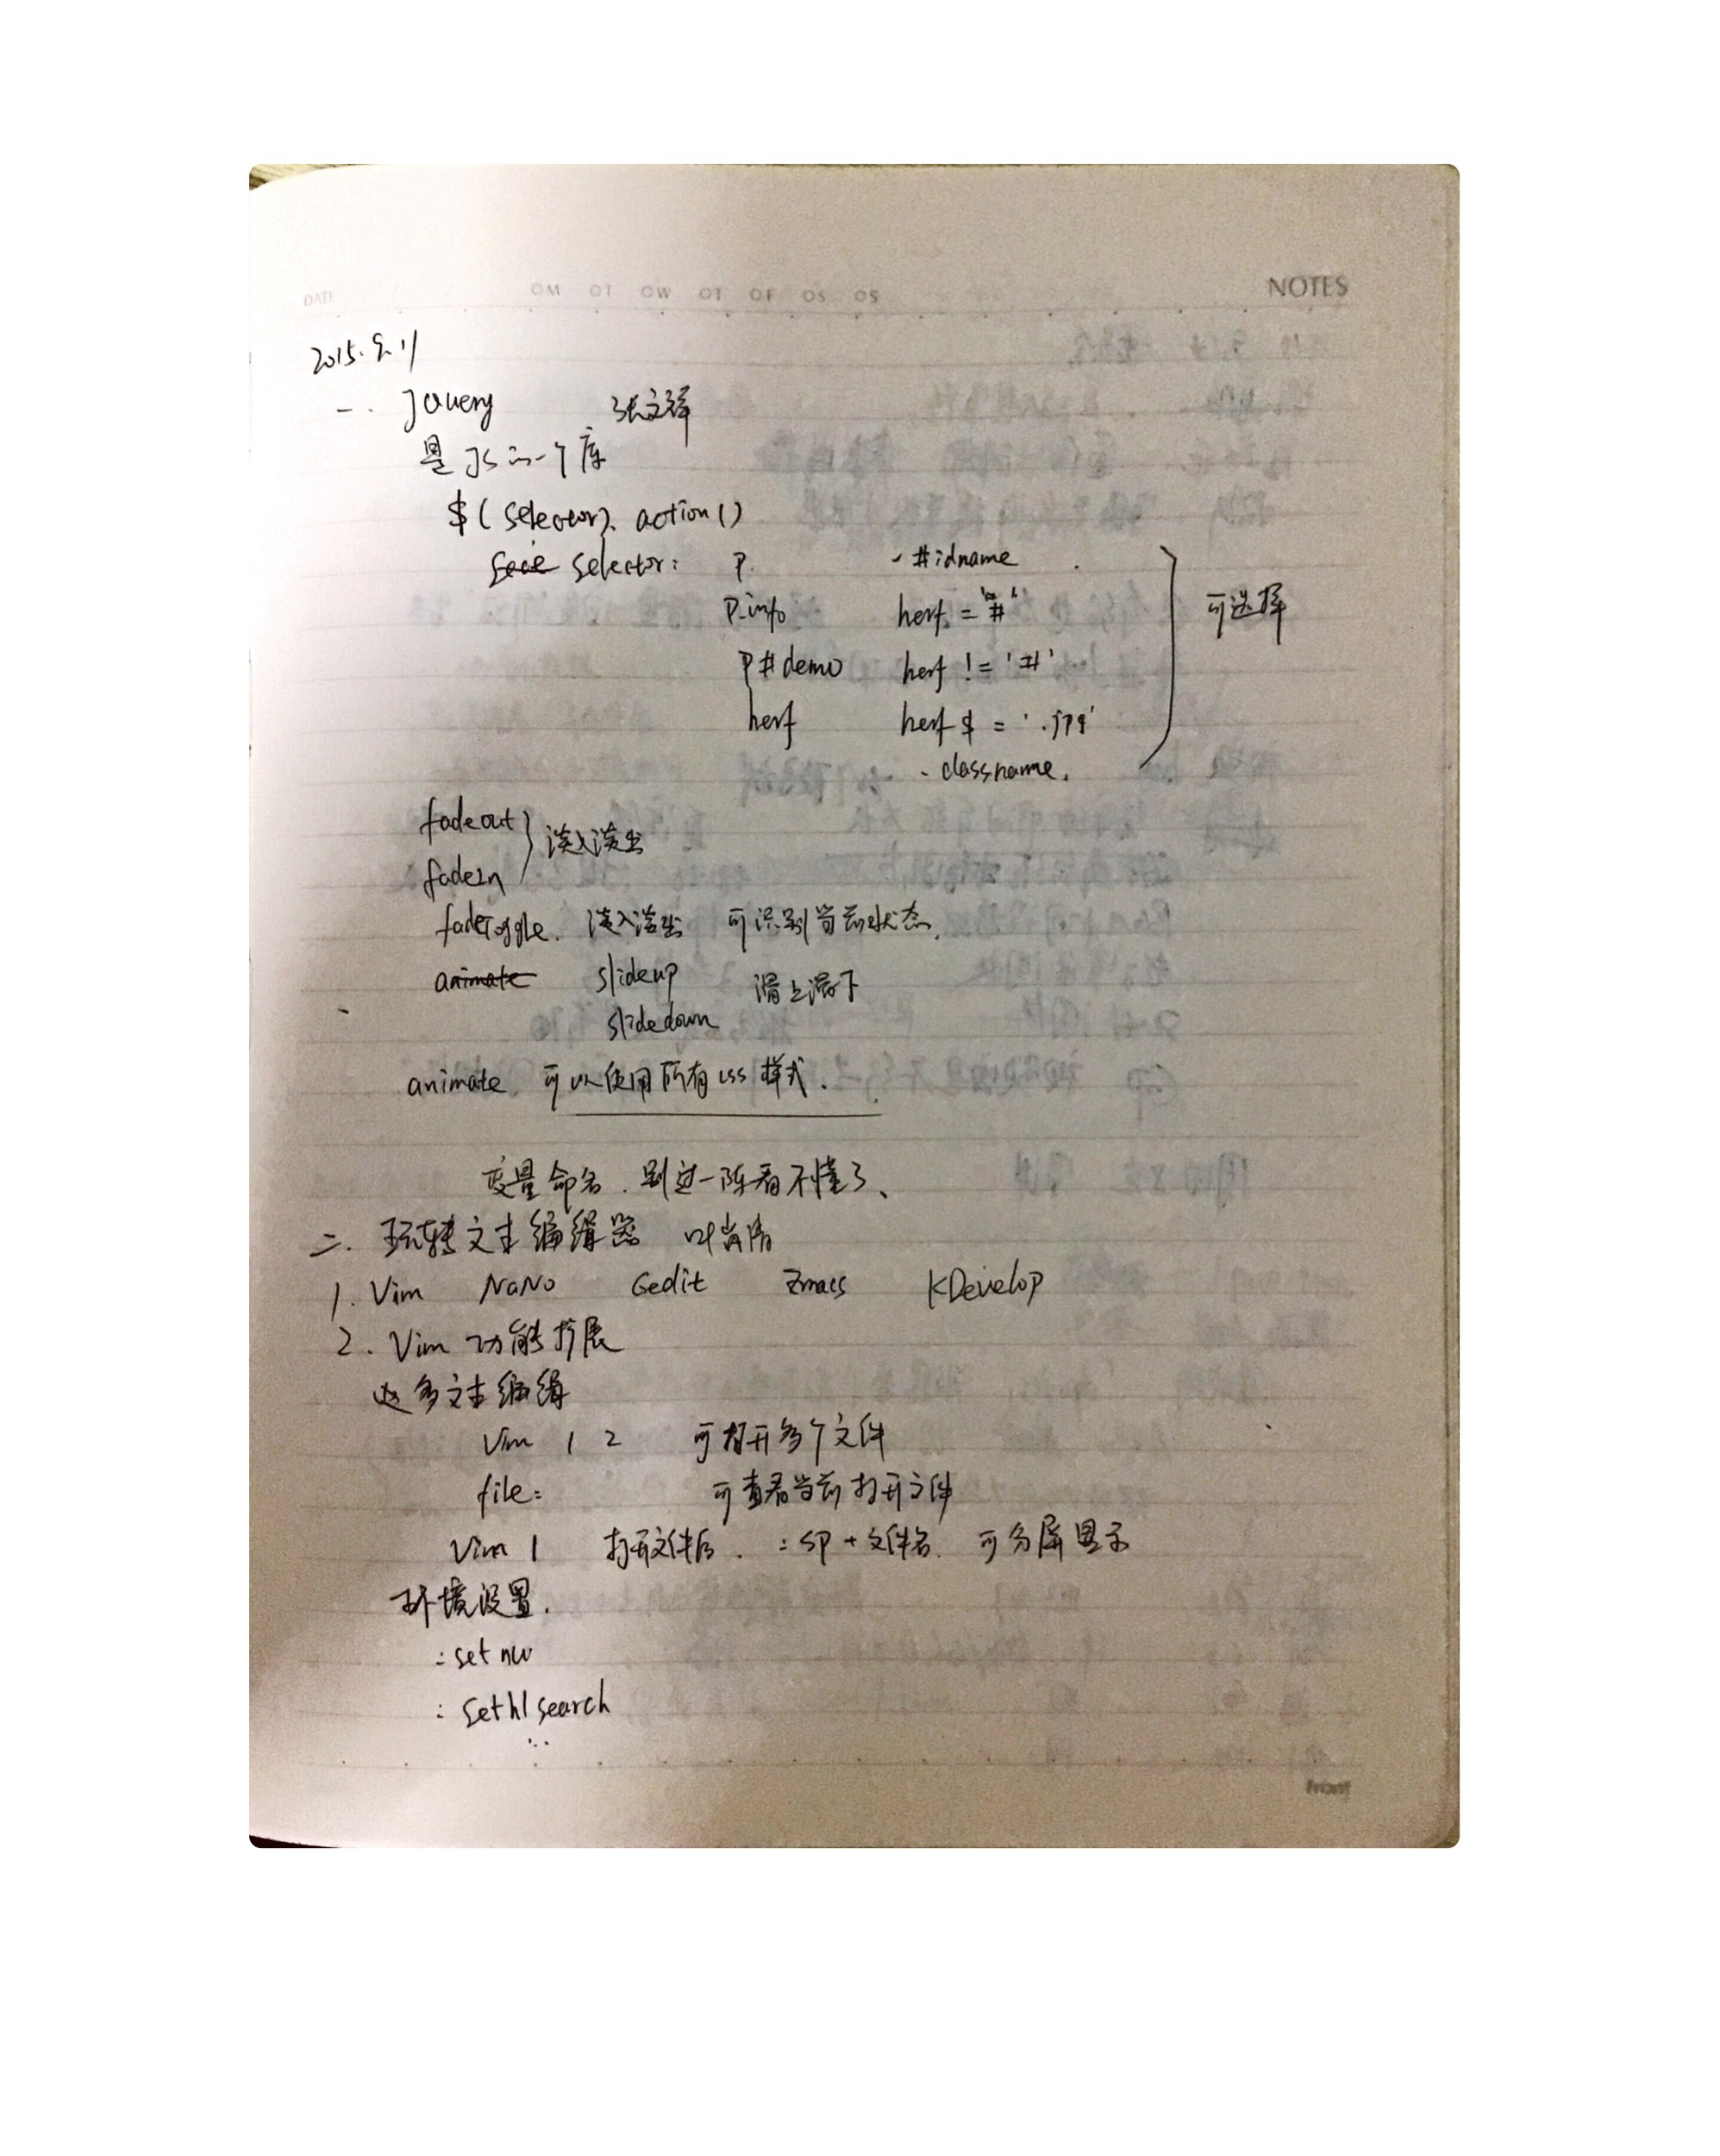 DATE OM OT OW OT OF OS OS NOTES
2015.9.11
一. JQuery 张文祥
是JS的一个库
$(selector). action()
selector: P. - #idname
P.info herf = "#" 可选择
P#demo herf != '#'
herf herf $ = '.jpg'
. classname.
fadeout
淡入淡出
fadeIn
fadeToggle. 淡入淡出 可识别当前状态.
animate slideup 滑上滑下
slidedown
animate 可以使用所有css样式.
变量命名. 别过一阵看不懂了、
二. 玩转文本编辑器
1. Vim NaNo Gedit Emacs KDevelop
2. Vim 功能扩展
多文本编辑
Vim 1 2 可打开多个文件
file: 可查看当前打开文件
Vim 1 打开文件后. :sp + 文件名. 可分屏显示
环境设置.
: set nu
: set hlsearch